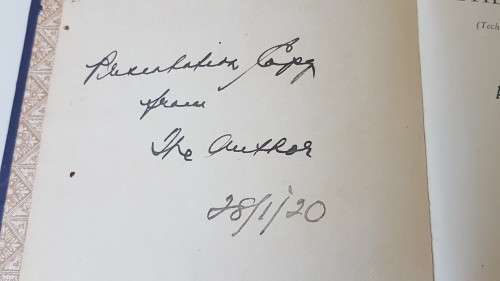 Presentation Copy
from
The Author
28/1/20
(Tech